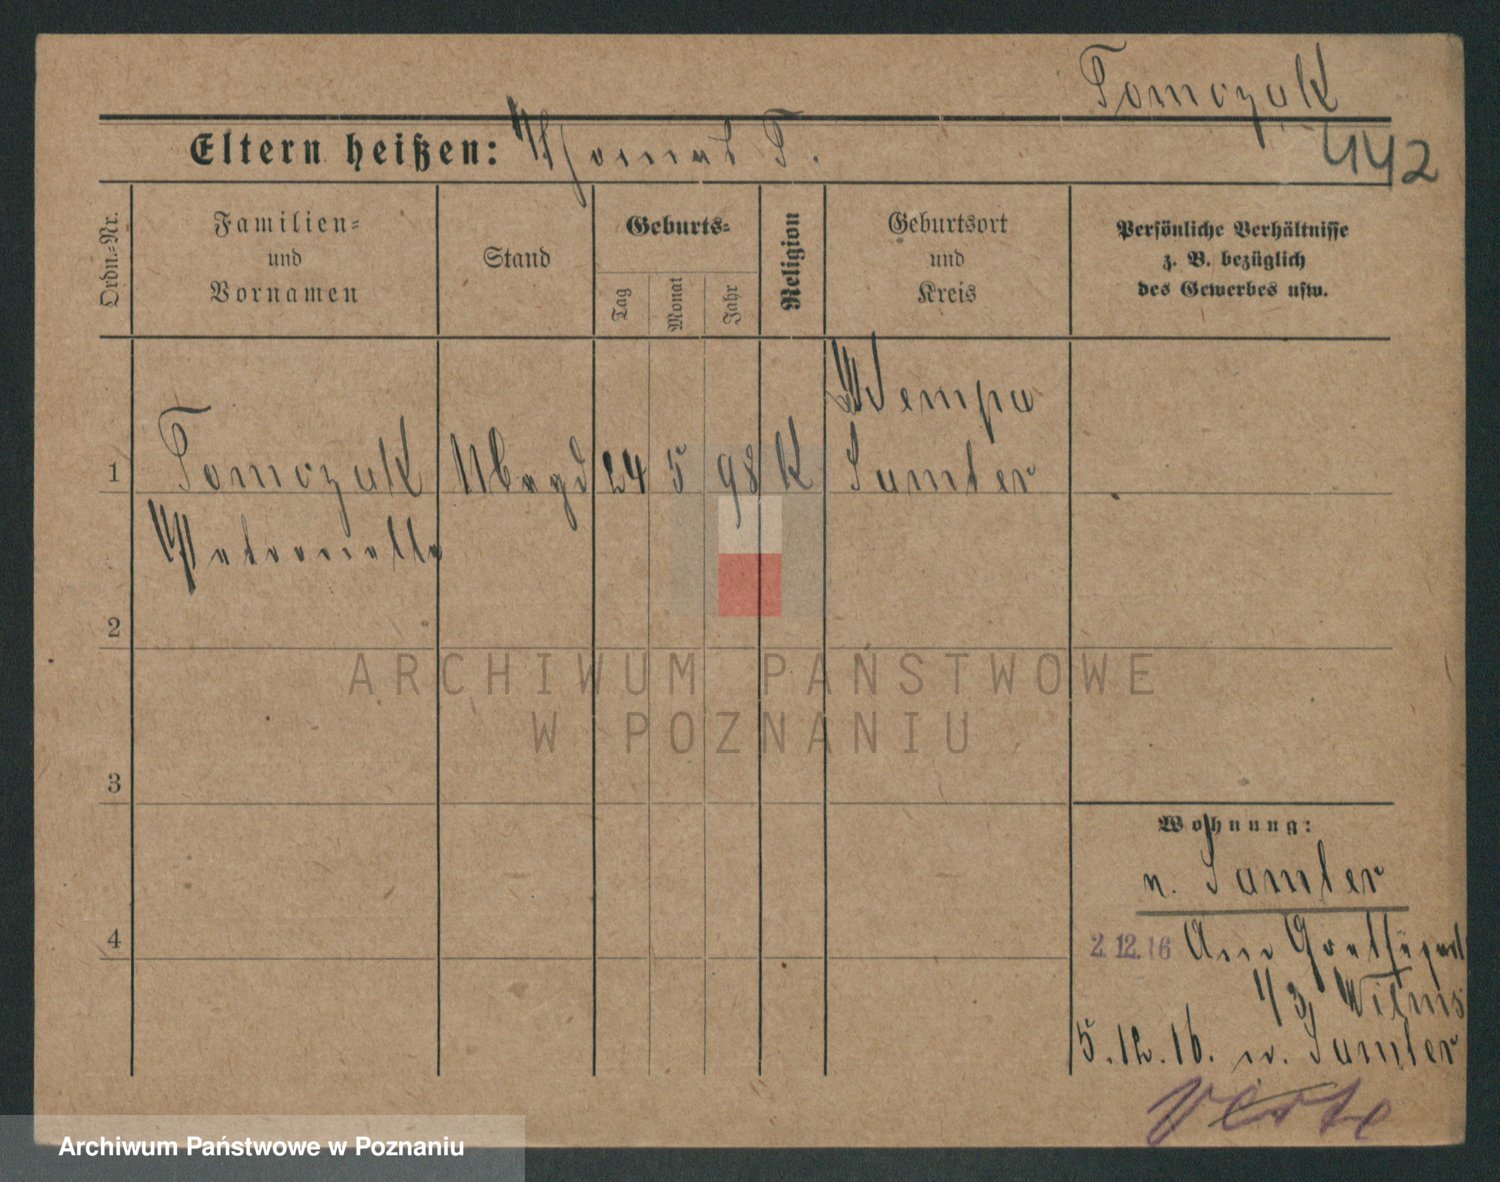 Tomczak
442
Eltern heißen: Thomas T.
Ordn.-Nr.
Familien-
und
Vornamen
Stand
Geburts-
Tag
Monat
Jahr
Religion
Geburtsort
und
Kreis
Persönliche Verhältnisse
z. B. bezüglich
des Gewerbes usw.
1
Tomczak
Petronella
Magd
24
5
98
K
Kempa
Samter
2
3
4
Wohnung:
n. Samter
2.12.16 Am
1/3, Wilms
5.12.16. n. Samter
Verte
ARCHIWUM PAŃSTWOWE
W POZNANIU
Archiwum Państwowe w Poznaniu